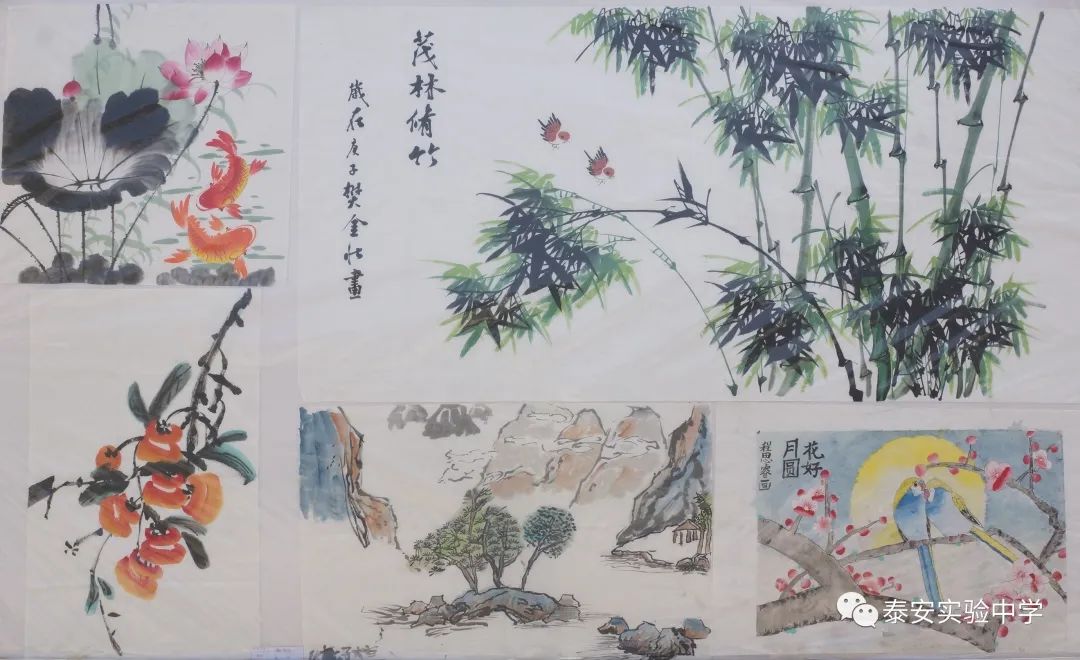 茂林脩竹
歲在庚子樊金
畫
花好
月圆
程思睿画
泰安实验中学